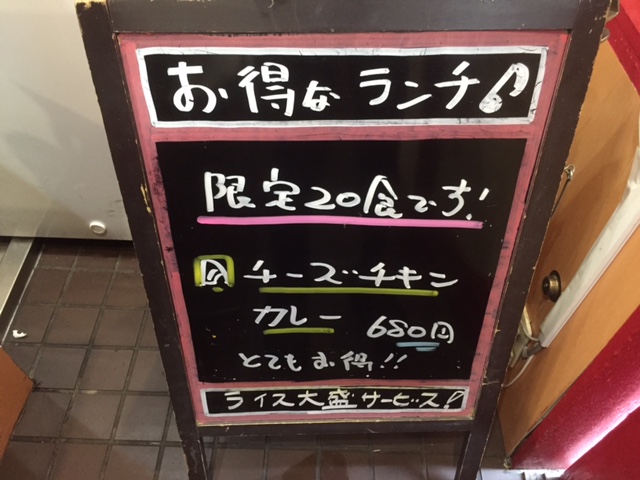 お得なランチ♪
限定20食です!
月 チーズチキン
カレー 680円
とてもお得!!
ライス大盛サービス!